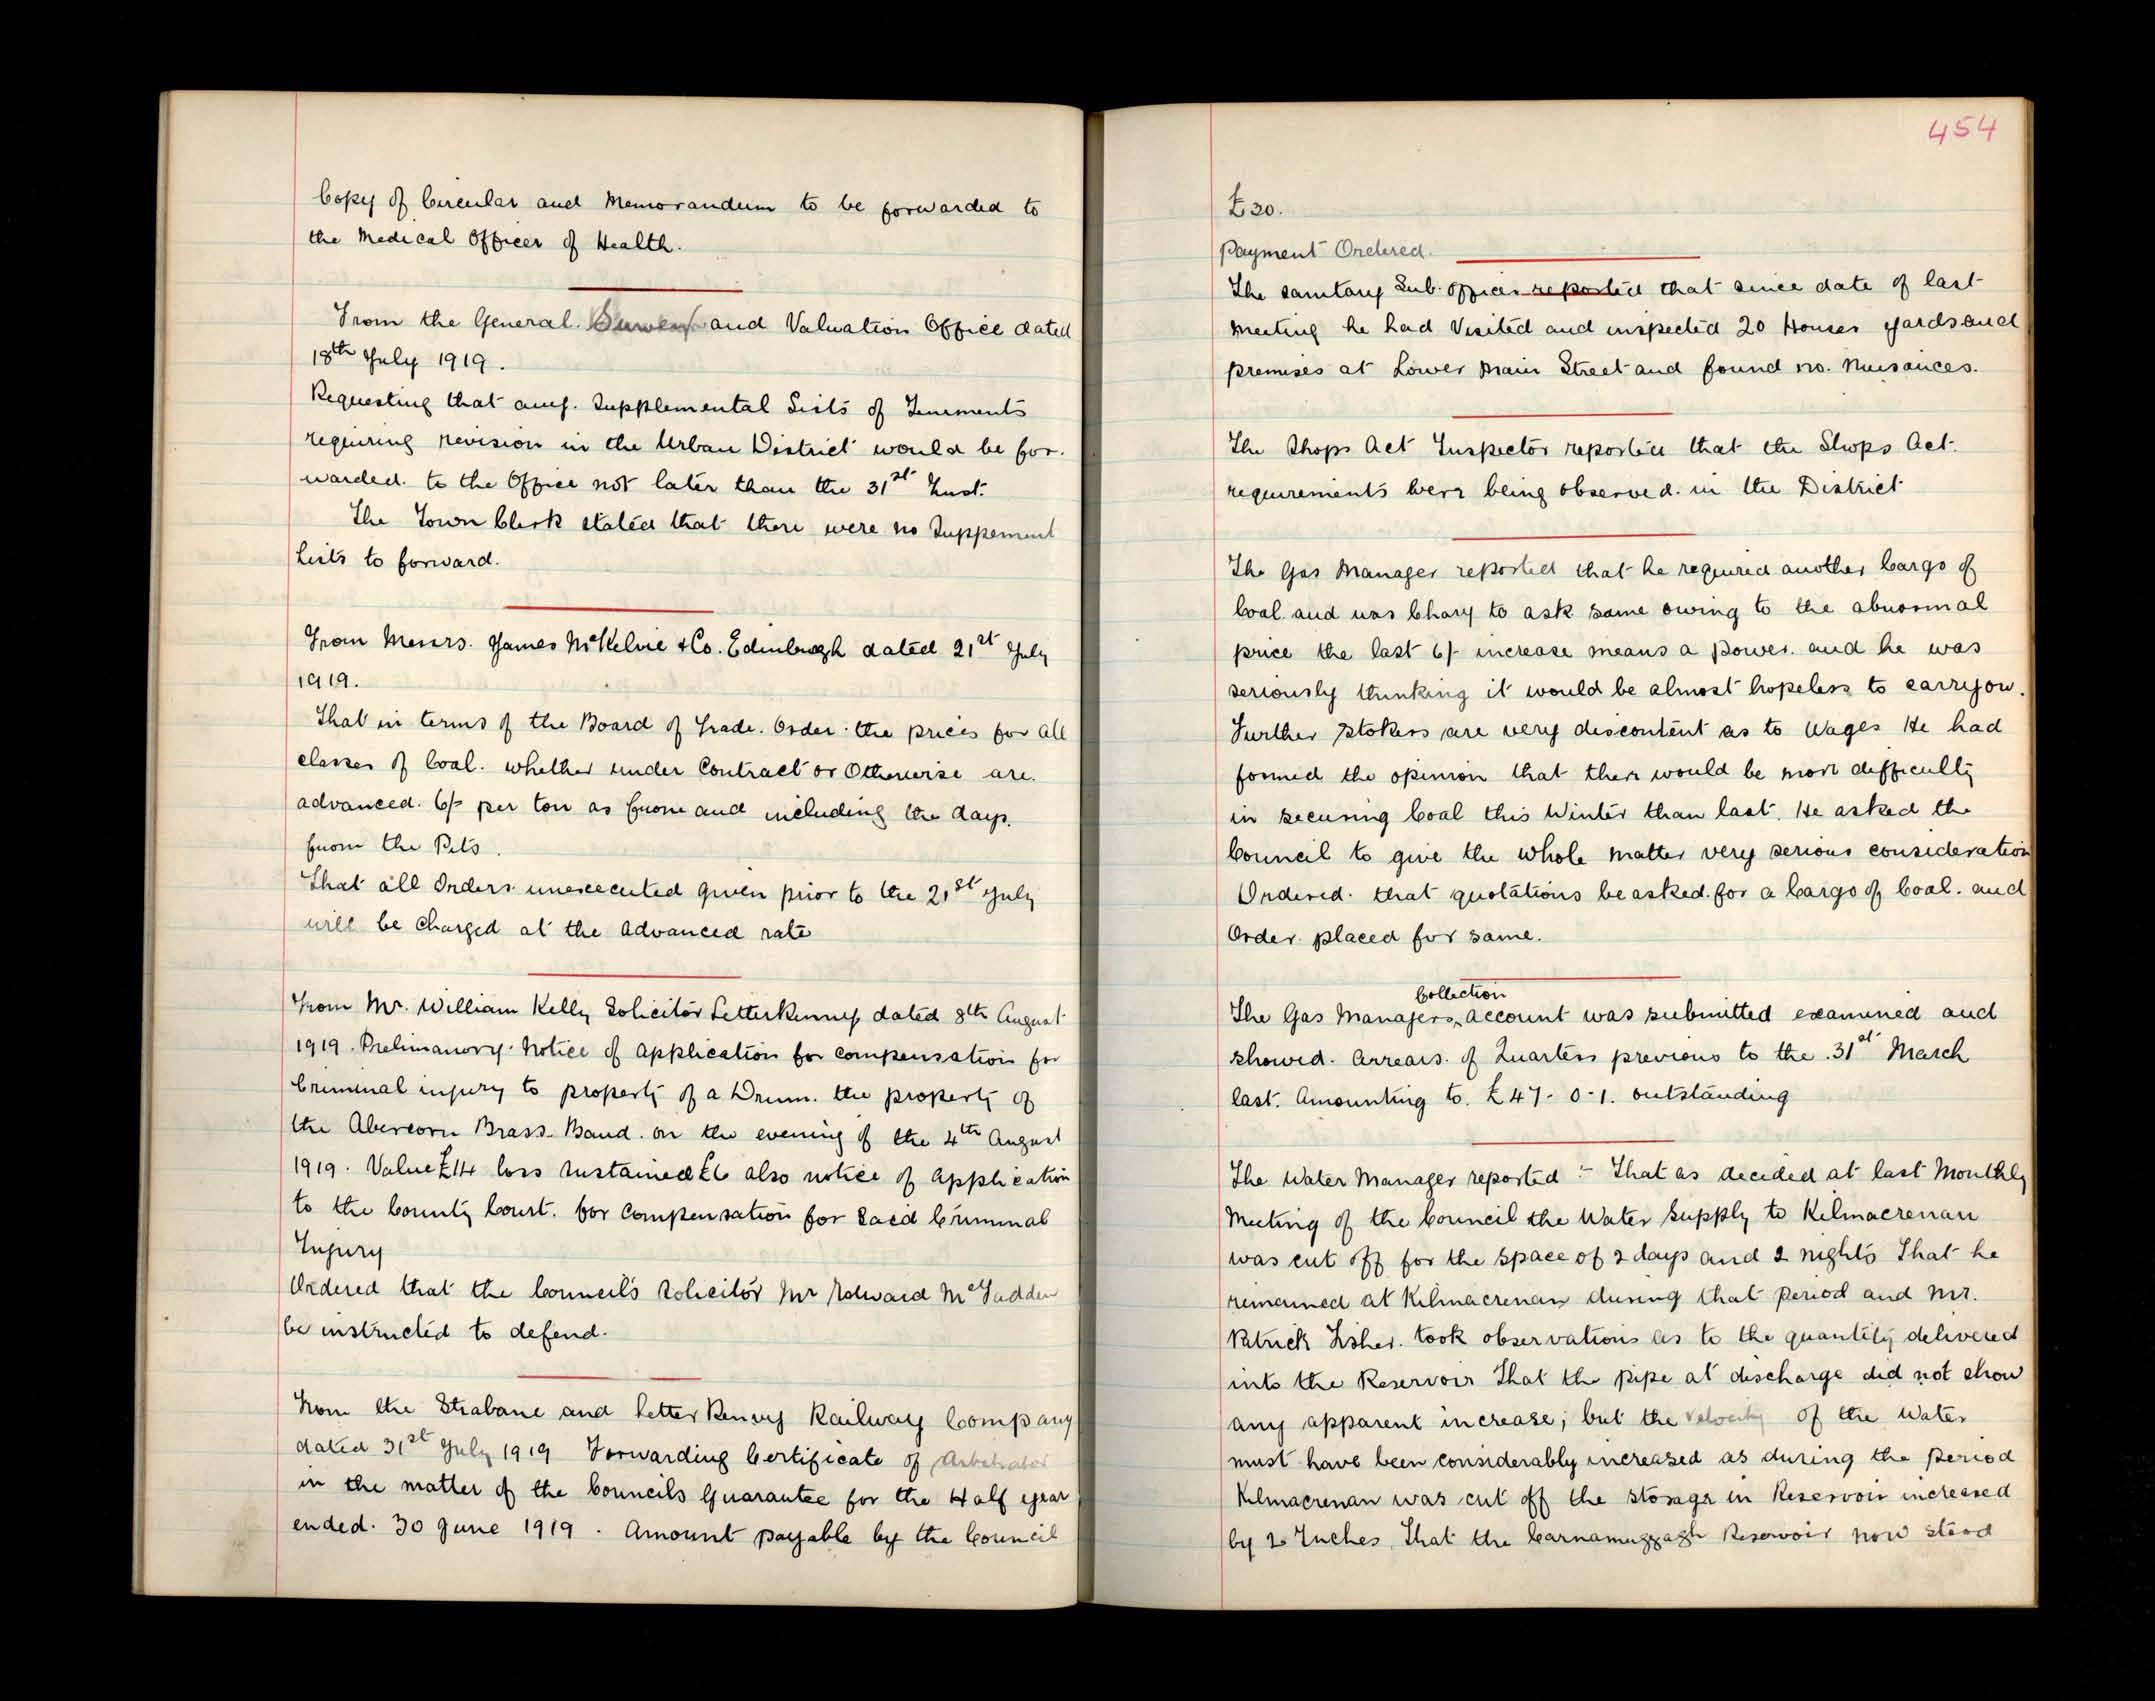 Copy of Circular and Memorandum to be forwarded to
the Medical Officer of Health.
From the General Survey and Valuation Office dated
18th July 1919.
Requesting that any. Supplemental Lists of Tenements
requiring revision in the Urban District would be for-
warded. to the Office not later than the 31st Inst.
The Town Clerk stated that there were no Suppement
Lists to forward.
From Messrs. James McKelvie & Co. Edinburgh dated 21st July
1919.
That in terms of the Board of Trade. Order. the prices for all
classes of Coal. whether under Contract or Otherwise are.
advanced. 6/- per ton as from and including the days.
from the Pits.
That all Orders unexecuted given prior to the 21st July
will be charged at the advanced rate
From Mr. William Kelly Solicitor Letterkenny dated 8th August
1919. Prelimanory. Notice of application for compensation for
Criminal injury to property of a Drum. the property of
the Abercorn Brass. Band. on the evening of the 4th August
1919. Value £14 loss sustained £6 also notice of application
to the County Court. for compensation for said Criminal
Injury
Ordered that the Council's Solicitor Mr Edward McFadden
be instructed to defend.
From the Strabane and Letterkenny Railway Company
dated 31st July 1919 Forwarding Certificate of Arbitrator
in the matter of the Councils Guarantee for the Half year
ended. 30 June 1919. Amount payable by the Council
454
£30.
Payment Ordered.
The Sanitary Sub. Officer reported that since date of last
meeting he had Visited and inspected 20 Houses yards and
premises at Lower Main Street and found no. Nuisances.
The Shops Act Inspector reported that the Shops Act.
requirements were being observed. in the District
The Gas Manager reported that he required another Cargo of
Coal. and was Chary to ask same owing to the abnormal
price the last 6/- increase means a power. and he was
seriously thinking it would be almost hopeless to carry on.
Further stokers are very discontent as to Wages He had
formed the opinion that there would be more difficulty
in securing Coal this Winter than last. He asked the
Council to give the whole matter very serious consideration
Ordered. that quotations be asked. for a Cargo of Coal. and
Order placed for same.
Collection
The Gas Managers account was submitted examined and
showed. Arrears. of Quarters previous to the .31st March
last. Amounting to. £47-0-1. outstanding
The Water Manager reported :- That as decided at last Monthly
Meeting of the Council the Water Supply to Kilmacrenan
was cut off for the space of 2 days and 2 nights That he
remained at Kilmacrenan during that period and Mr.
Patrick Fisher. took observations as to the quantity delivered
into the Reservoir That the pipe at discharge did not show
any apparent increase; but the velocity of the Water
must have been considerably increased as during the period
Kilmacrenan was cut off the storage in Reservoir increased
by 2 Inches, That the Carnamuggagh Reservoir now stood